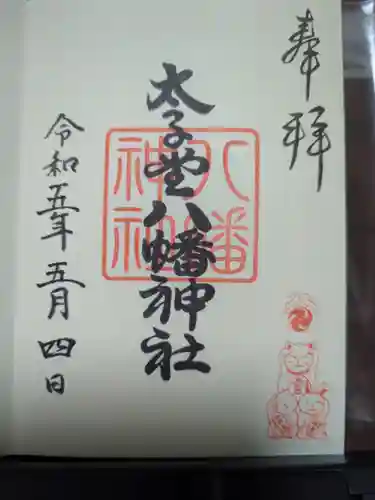 奉拝
太子堂八幡神社
八幡
神社
令和五年五月四日